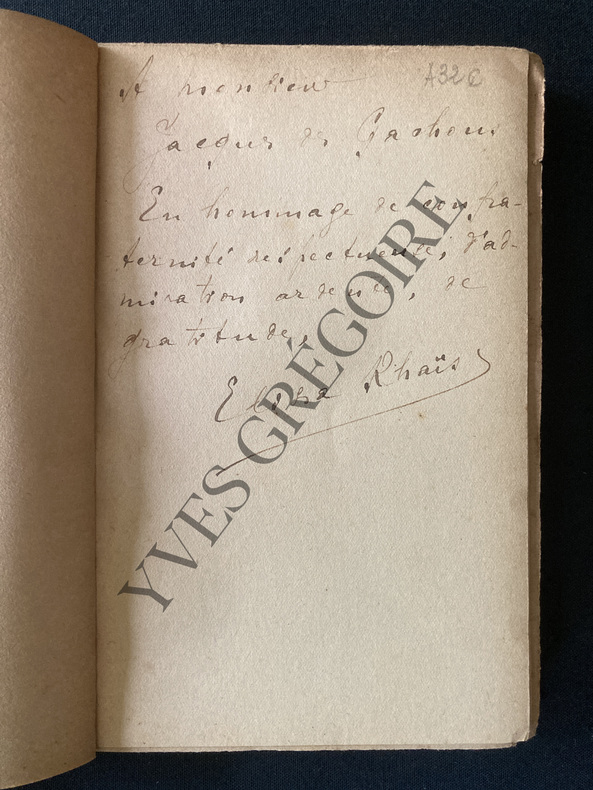 A monsieur
A32C
Jacques des Gachons
En hommage de confra-
ternité respectueuse, d'ad-
miration ardente, de
gratitude,
Elissa Rhaïs
YVES GRÉGOIRE